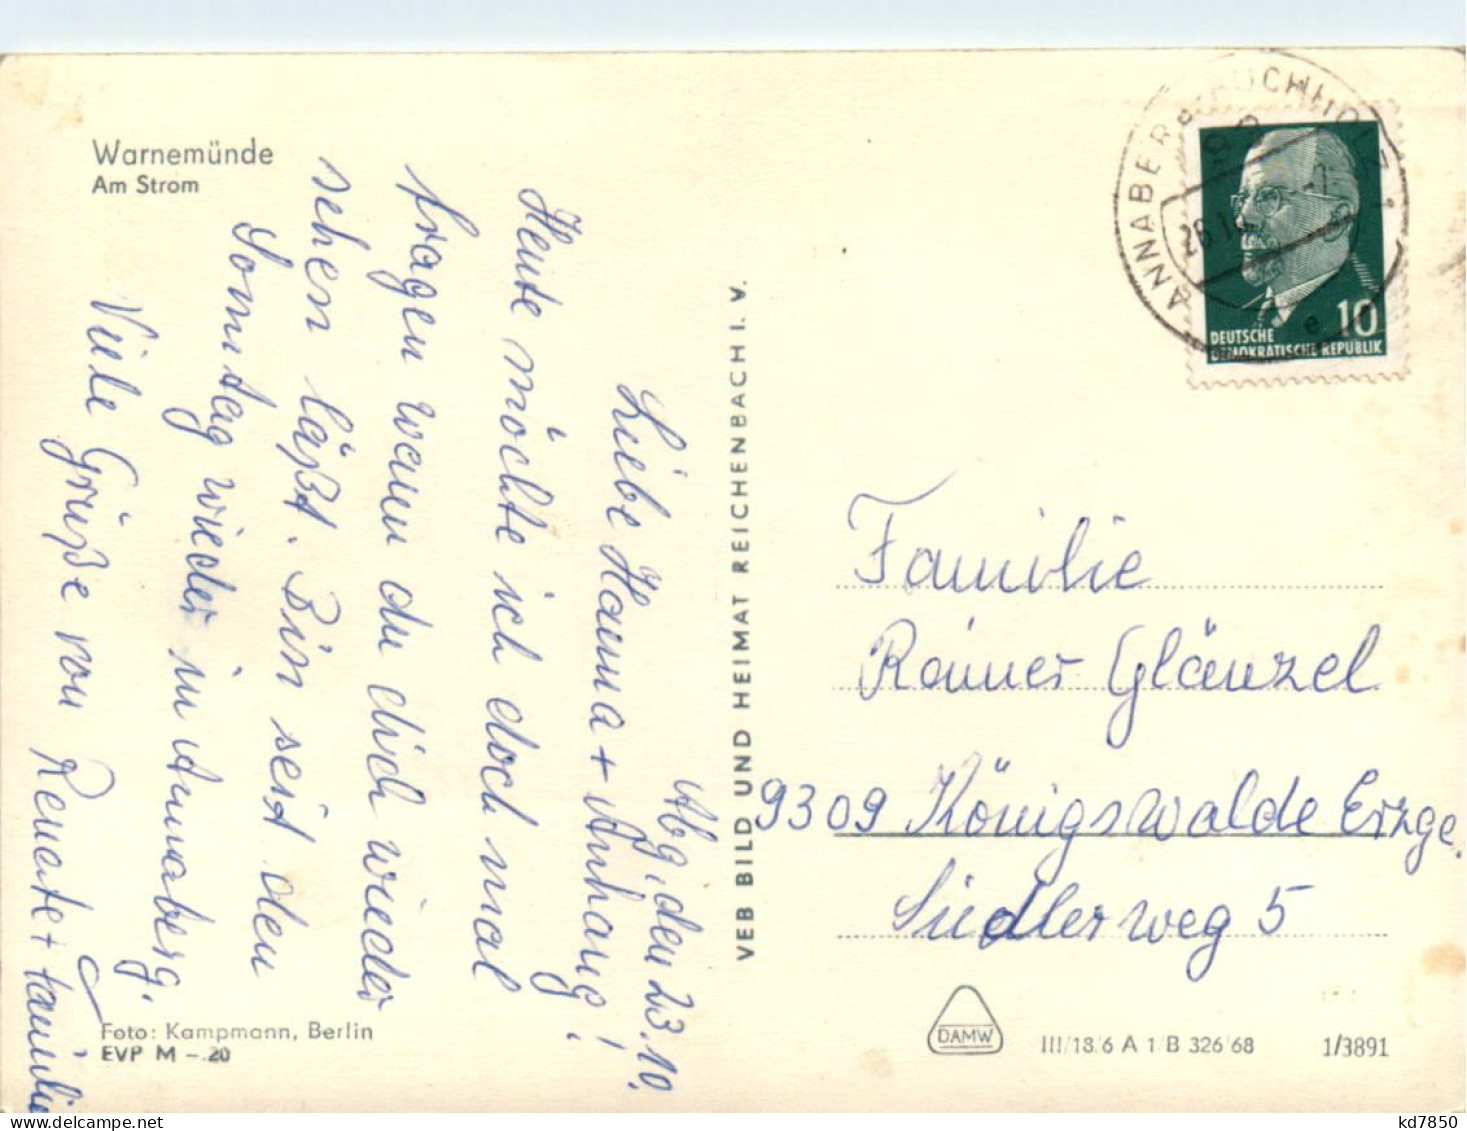 Warnemünde
Am Strom
Abg, den 23.10.
Liebe Hanna + Anhang!
Heute möchte ich doch mal
fragen wann du dich wieder
sehen läßt. Bin seit den
Sonntag wieder in Annaberg.
Viele Grüße von Renate + Familie
Foto: Kampmann, Berlin
EVP M -.20
VEB BILD UND HEIMAT REICHENBACH I. V.
DEUTSCHE
DEMOKRATISCHE REPUBLIK
10
Familie
Rainer Glänzel
9309 Königswalde Erzge.
Siedlerweg 5
DAMW
III/18/6 A 1/B 326/68
1/3891
kd7850